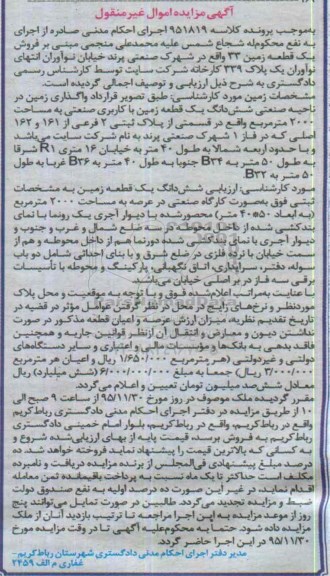 آگهی مزایده اموال غیرمنقول
به‌موجب پرونده کلاسه ۹۵۱۸۱۹ اجرای احکام مدنی صادره از اجرای
به نفع محکوم‌له شجاع شمس علیه محمدعلی منجمی مبنی بر فروش
یک قطعه زمین ۲۳ واقع در شهرک صنعتی پرند خیابان نوآوران انتهای
نوآوران یک پلاک ۳۲۹ کارخانه شرکت سایت توسط کارشناس رسمی
دادگستری به شرح ذیل ارزیابی و توصیف اجمالی گردیده است.
مشخصات زمین مورد کارشناسی: طبق تصویر قرارداد واگذاری زمین در
ناحیه صنعتی شش‌دانگ یک قطعه زمین با کاربری صنعتی به مساحت
۲۰۰۰ مترمربع واقع در قسمتی از پلاک ثبتی ۲ فرعی از ۱۶۱ و ۱۶۲
اصلی که در فاز ۱ شهرک صنعتی پرند به نام شرکت سایت می‌باشد
و با حدود اربعه شمالا به طول ۴۰ متر به خیابان ۱۶ متری R۱ شرقا
به طول ۵۰ متر به B۳۴ جنوبا به طول ۴۰ متر به B۳۶ غربا به طول
۵۰ متر به B۳۲.
مورد کارشناسی: ارزیابی شش‌دانگ یک قطعه زمین به مشخصات
ثبتی فوق به‌صورت کارگاه صنعتی در عرصه به مساحت ۲۰۰۰ مترمربع
(به ابعاد ۵۰*۴۰ متر) محصور شده با دیوار آجری یک رونما با نمای
بندکشی شده از داخل محوطه در سه ضلع شمال و غرب و جنوب و
دیوار آجری با نمای بندکشی شده دورنما هم از داخل محوطه و هم از
سمت خیابان با نرده فلزی در ضلع شرق و با بنای احداثی شامل دو باب
سوله، دفتر، سرایداری، اتاق نگهبانی، پارکینگ و محوطه با تأسیسات
برقی سه فاز در بر اصلی خیابان می‌باشد.
با عنایت به‌مراتب اعلام شده فوق و با توجه به موقعیت و محل پلاک
موردنظر و نرخ‌های رایج در محل در نظر گرفتن عوامل مؤثر در قضیه در
تاریخ تقدیم نظریه میزان ارزش عرصه و اعیان قطعه مذکور در صورت
نداشتن دیون و معارض و انتقال آن ازنظر قوانین جاریه و همچنین
فاقد بدهی به بانک‌ها و مؤسسات مالی و اعتباری و سایر دستگاه‌های
دولتی و غیردولتی (هر مترمربع ۱/۶۵۰/۰۰۰ ریال و اعیان هر مترمربع
۳/۰۰۰/۰۰۰ ریال) جمعا به مبلغ ۶/۰۰۰/۰۰۰/۰۰۰ (شش میلیارد) ریال
معادل شش‌صد میلیون تومان تعیین و اعلام می‌گردد.
مقرر گردیده ملک موصوف در روز مورخ ۹۵/۱۱/۳۰ از ساعت ۹ صبح الی
۱۰ از طریق مزایده در دفتر اجرای احکام مدنی دادگستری رباط‌کریم
واقع در رباط‌کریم، واقع در رباط‌کریم، بلوار امام خمینی دادگستری
رباط‌کریم به فروش برسد. قیمت پایه از بهای ارزیابی‌شده شروع و
به کسی که بالاترین قیمت را پیشنهاد نماید فروخته خواهد شد. ده
درصد مبلغ پیشنهادی فی‌المجلس از برنده مزایده دریافت و نامبرده
مکلف است حداکثر تا یک ماه نسبت به پرداخت باقیمانده ثمن معامله
اقدام نماید، در غیر این صورت ده درصد اولیه به نفع صندوق دولت
ضبط و مزایده تجدید می‌گردد. طالبین در صورت تمایل می‌توانند پنج
روز از موعد مزایده به این اجرا مراجعه تا ترتیب بازدید آنان از ملک
مزایده داده شود. حتما به محکوم‌علیه آگهی تا در وقت مزایده مورخ
۹۵/۱۱/۳۰ در این اجرا حاضر گردد.
مدیر دفتر اجرای احکام مدنی دادگستری شهرستان رباط‌کریم-
غفاری م الف ۲۴۵۹